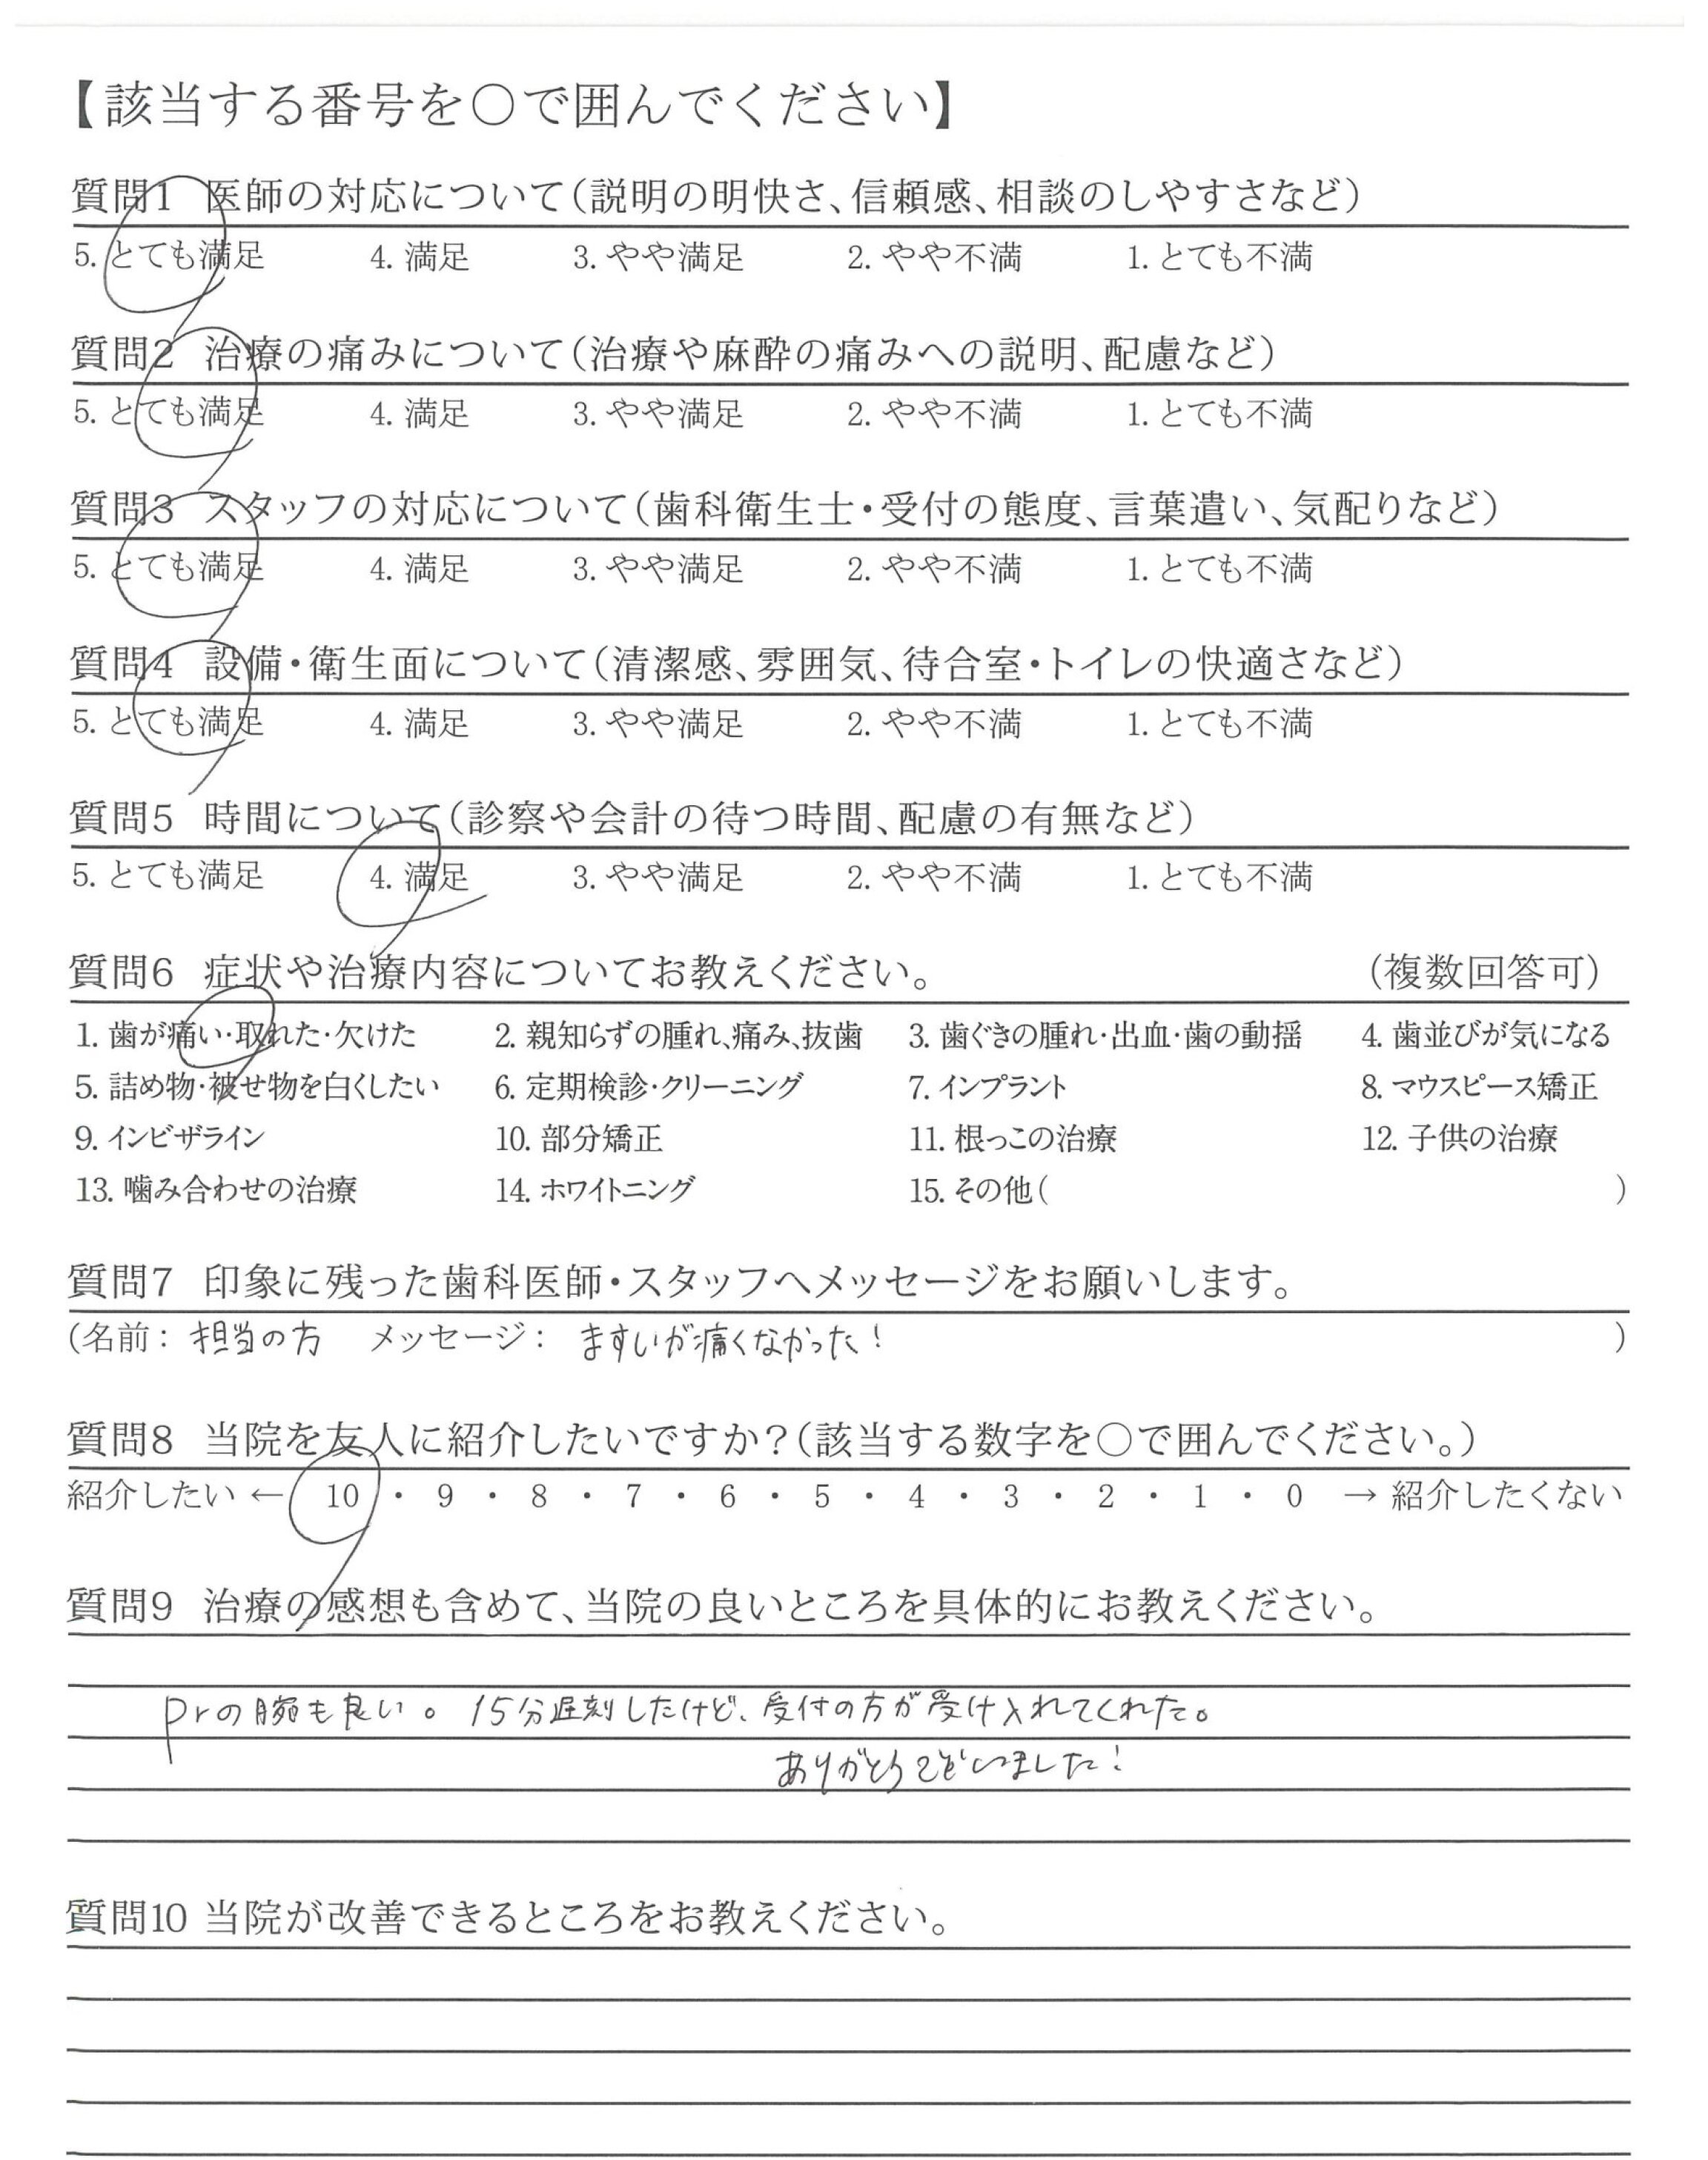 【該当する番号を○で囲んでください】
質問1 医師の対応について(説明の明快さ、信頼感、相談のしやすさなど)
5. とても満足 4. 満足 3. やや満足 2. やや不満 1. とても不満
質問2 治療の痛みについて(治療や麻酔の痛みへの説明、配慮など)
5. とても満足 4. 満足 3. やや満足 2. やや不満 1. とても不満
質問3 スタッフの対応について(歯科衛生士・受付の態度、言葉遣い、気配りなど)
5. とても満足 4. 満足 3. やや満足 2. やや不満 1. とても不満
質問4 設備・衛生面について(清潔感、雰囲気、待合室・トイレの快適さなど)
5. とても満足 4. 満足 3. やや満足 2. やや不満 1. とても不満
質問5 時間について(診察や会計の待つ時間、配慮の有無など)
5. とても満足 4. 満足 3. やや満足 2. やや不満 1. とても不満
質問6 症状や治療内容についてお教えください。 (複数回答可)
1. 歯が痛い・取れた・欠けた 2. 親知らずの腫れ、痛み、抜歯 3. 歯ぐきの腫れ・出血・歯の動揺 4. 歯並びが気になる
5. 詰め物・被せ物を白くしたい 6. 定期検診・クリーニング 7. インプラント 8. マウスピース矯正
9. インビザライン 10. 部分矯正 11. 根っこの治療 12. 子供の治療
13. 噛み合わせの治療 14. ホワイトニング 15. その他( )
質問7 印象に残った歯科医師・スタッフへメッセージをお願いします。
(名前: 担当の方 メッセージ: ますいが痛くなかった! )
質問8 当院を友人に紹介したいですか?(該当する数字を○で囲んでください。)
紹介したい ← 10 ・ 9 ・ 8 ・ 7 ・ 6 ・ 5 ・ 4 ・ 3 ・ 2 ・ 1 ・ 0 → 紹介したくない
質問9 治療の感想も含めて、当院の良いところを具体的にお教えください。
Drの腕も良い。15分遅刻したけど、受付の方が受け入れてくれた。
ありがとうございました!
質問10 当院が改善できるところをお教えください。